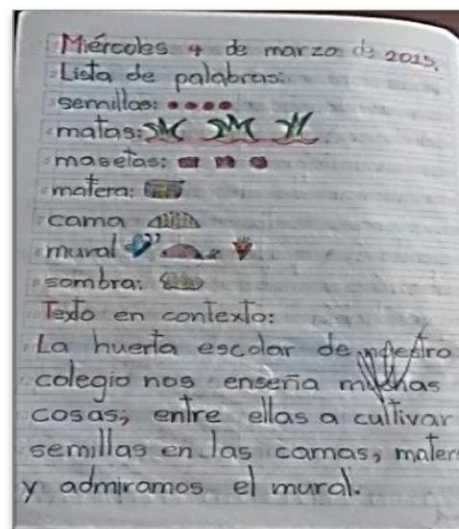 Miércoles 4 de marzo de 2015.
Lista de palabras:
semillas:
matas:
masetas:
matera:
cama
mural
sombra:
Texto en contexto:
La huerta escolar de nuestro
colegio nos enseña muchas
cosas, entre ellas a cultivar
semillas en las camas, mater
y admiramos el mural.